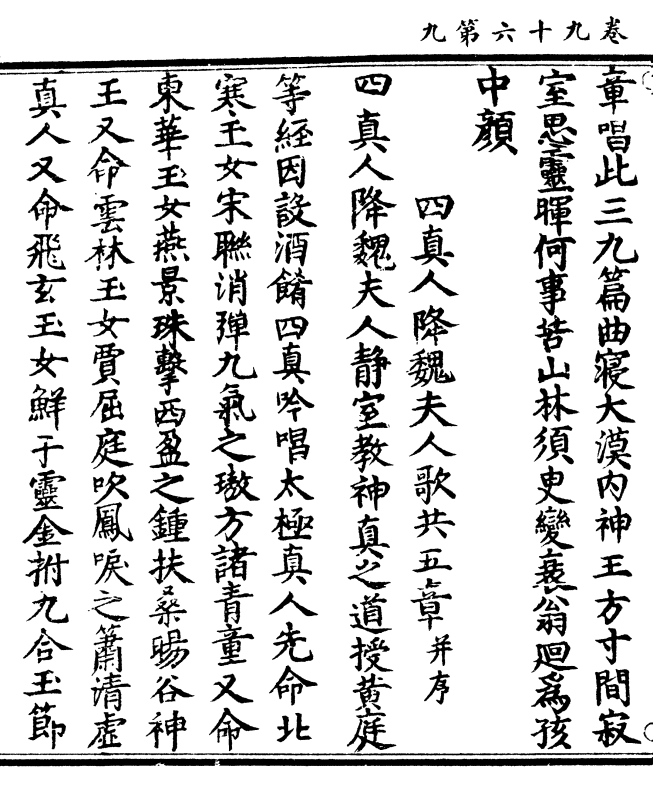 卷九十六第九
章唱此三九篇曲寝大漠内神王方寸間寂
室思靈暉何事苦山林須臾變衰翁廻為孩
中顔
四真人降魏夫人歌共五章并序
四真人降魏夫人静室教神真之道授黄庭
等經因設酒餚四真吟唱太極真人先命北
寒玉女宋聯消彈九氣之璈方諸青童又命
東華玉女燕景珠擊西盈之鍾扶桑暘谷神
王又命雲林玉女賈屈庭吹鳳唳之簫清虚
真人又命飛玄玉女鮮于靈金拊九合玉節